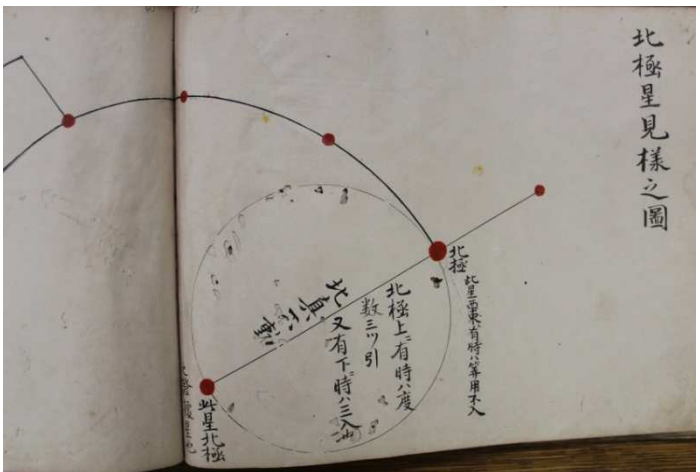 北極星見様之圖
北極
此星西東ニ有時ハ算用不入
北極上ニ有時ハ度
数三ツ引
又有下ニ時ハ三入也
北真不動
此星北極